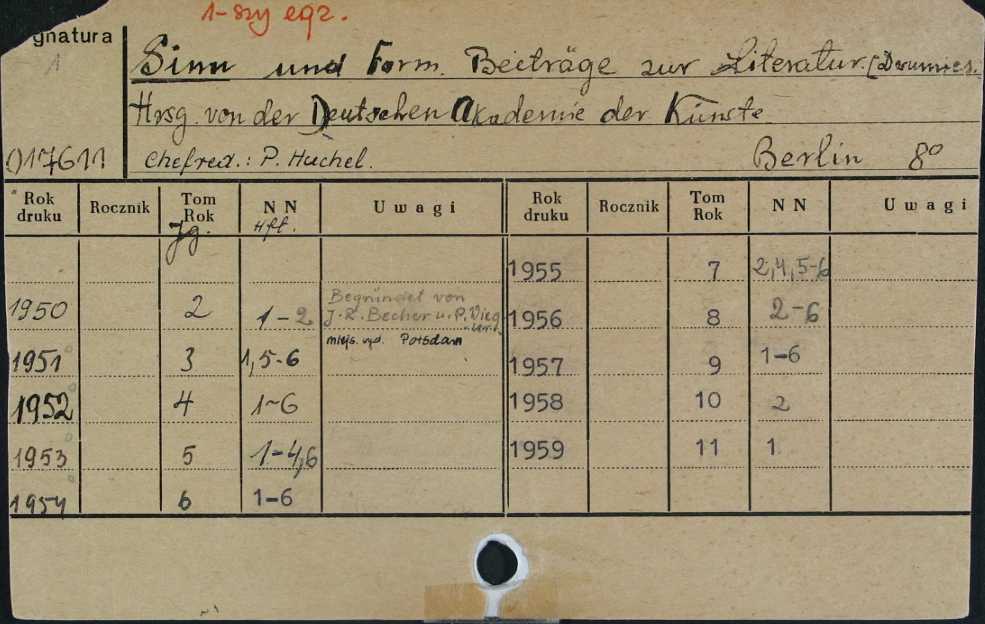 1-szy egz.
gnatura
1
Sinn und Form. Beiträge zur Literatur. (Dwumies.
Hrsg. von der Deutschen Akademie der Künste
017611 Chefred.: P. Huchel. Berlin 8°
Rok druku Rocznik Tom Rok N N Uwagi Rok druku Rocznik Tom Rok N N Uwagi
Jg. Hft.
1955 7 2,4,5-6
1950 2 1-2 Begründet von J.R. Becher u. P. Wieg-ler. 1956 8 2-6
miejs. wyd. Potsdam
1951 3 1,5-6 1957 9 1-6
1952 4 1-6 1958 10 2
1953 5 1-4,6 1959 11 1
1954 6 1-6